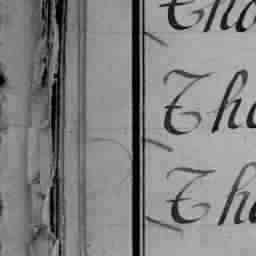 Tho
Tho
Tho